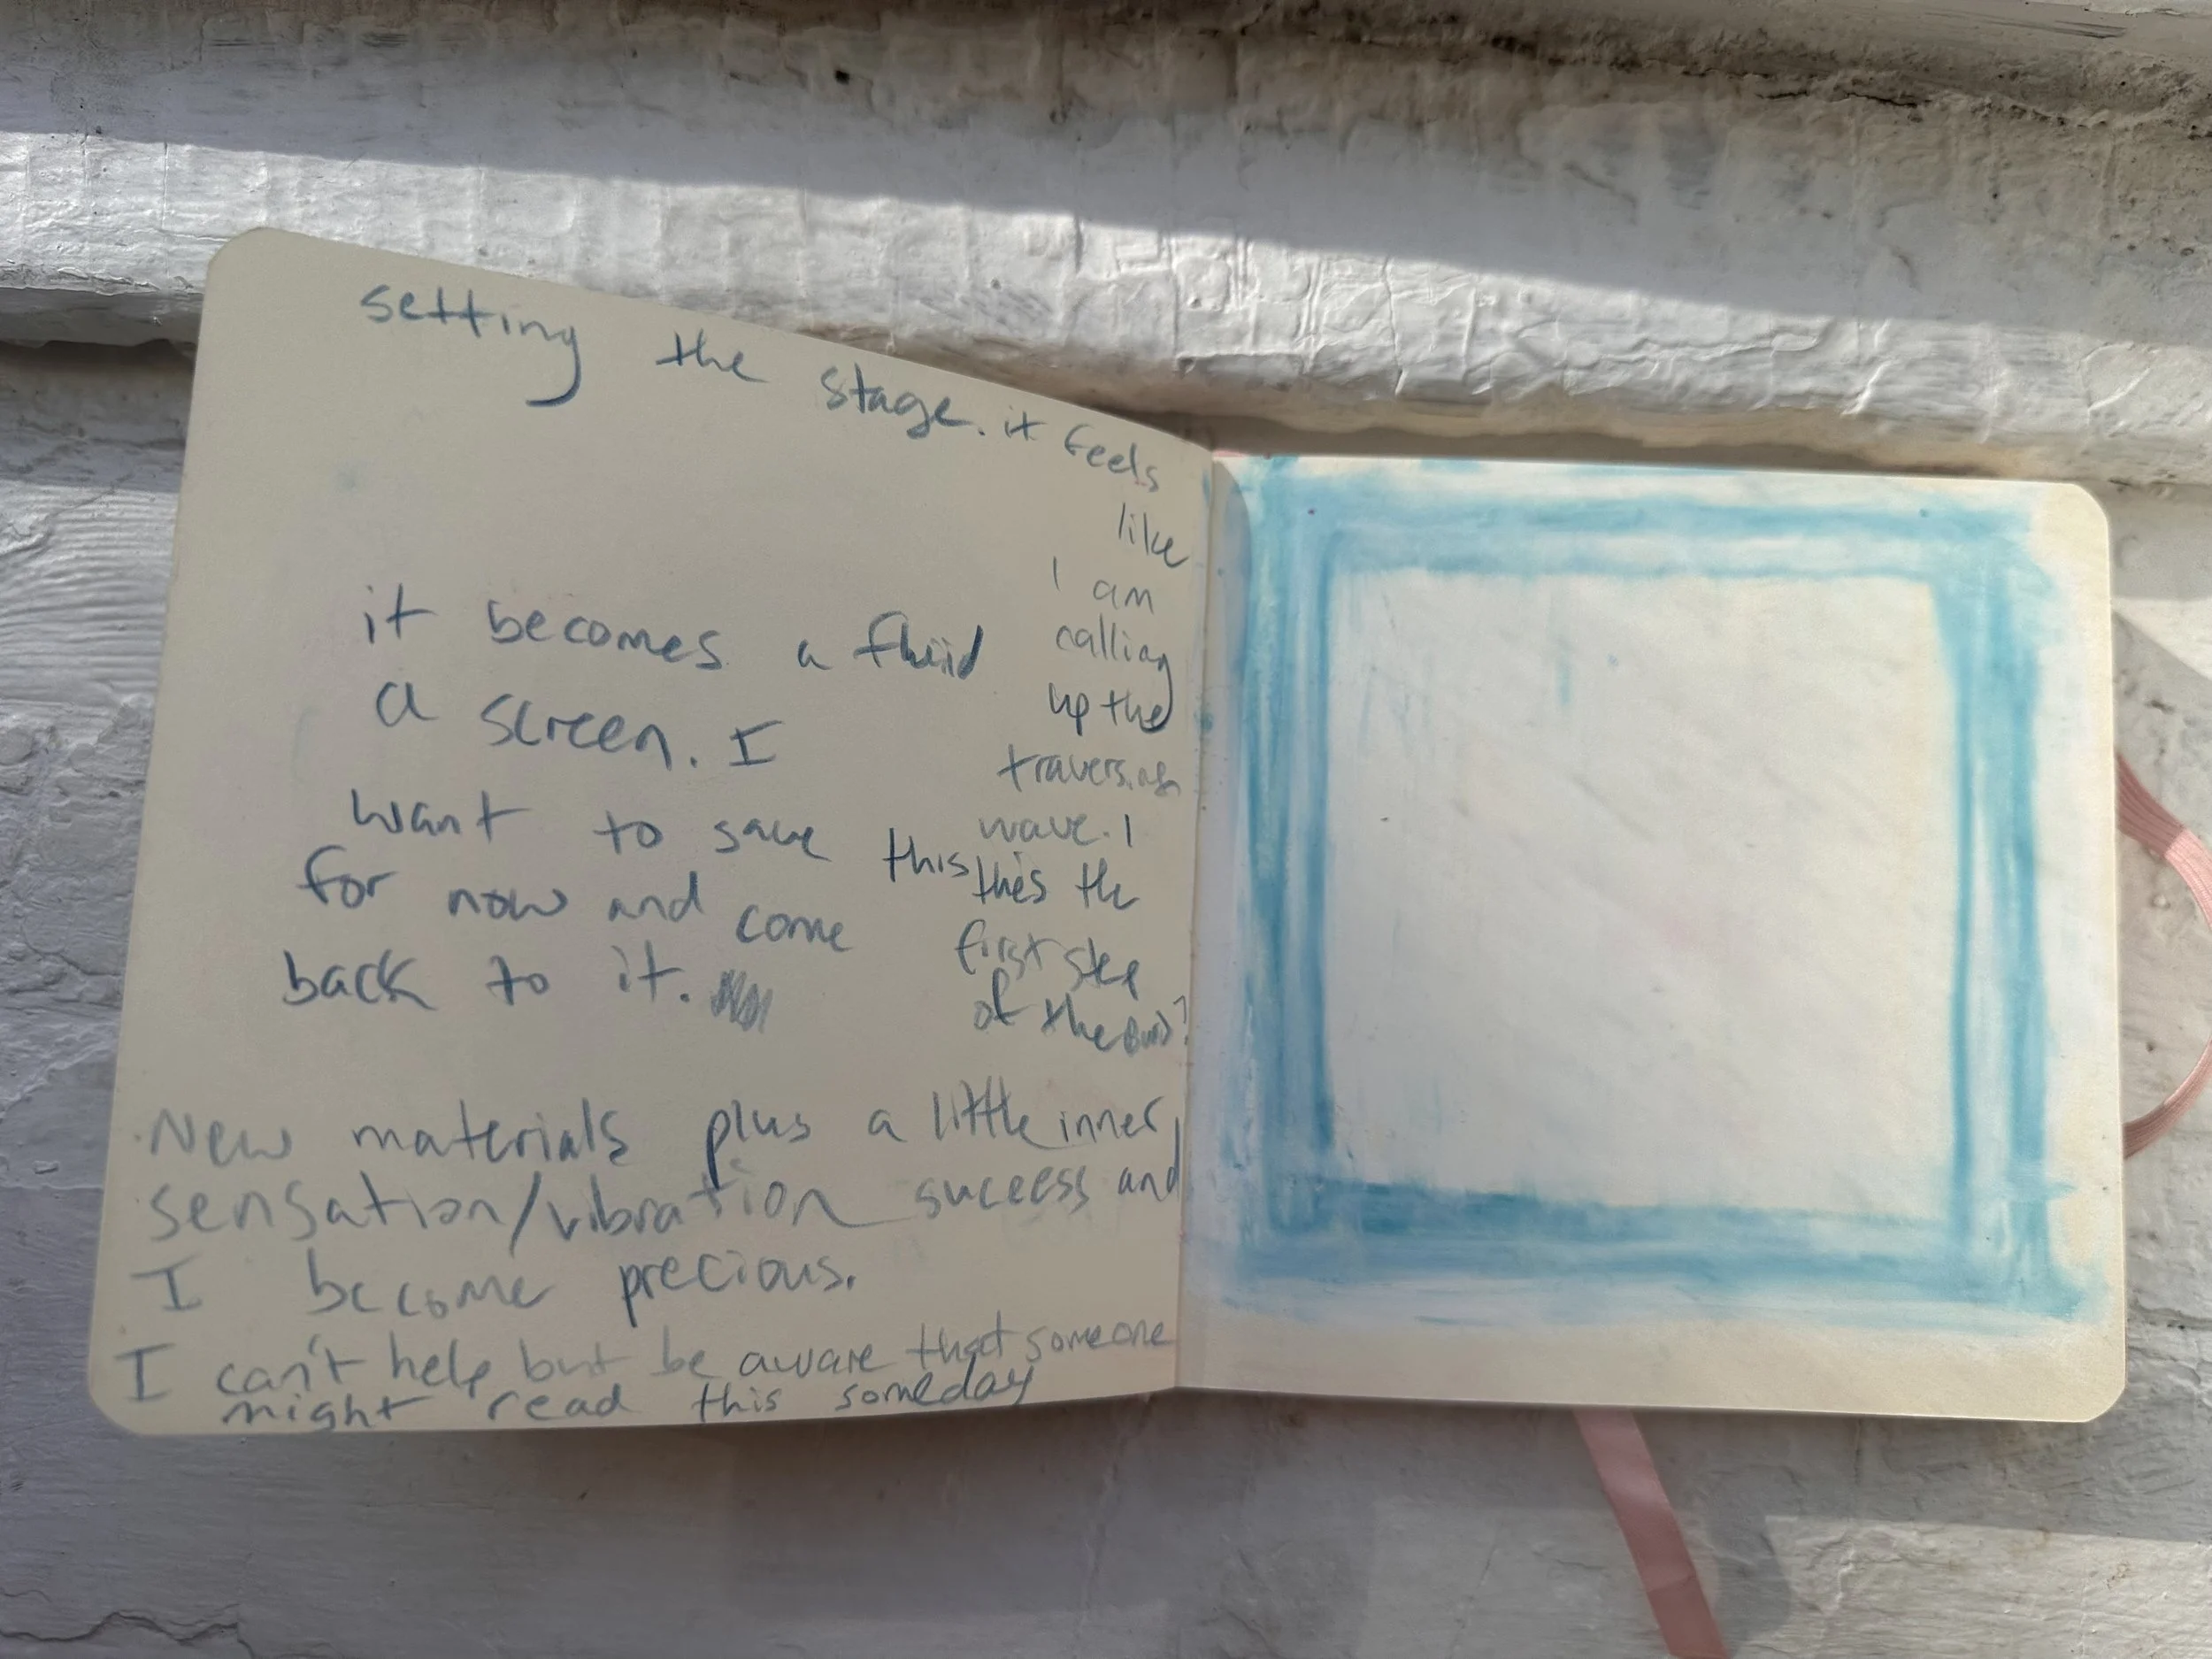 setting the stage. it feels
like
I am
calling
up the
wave. I
this the
first step
of the
it becomes a fluid
a screen. I
want to save this
for now and come
back to it.
New materials plus a little inner
sensation/vibration success and
I become precious.
I can't help but be aware that someone
might read this someday